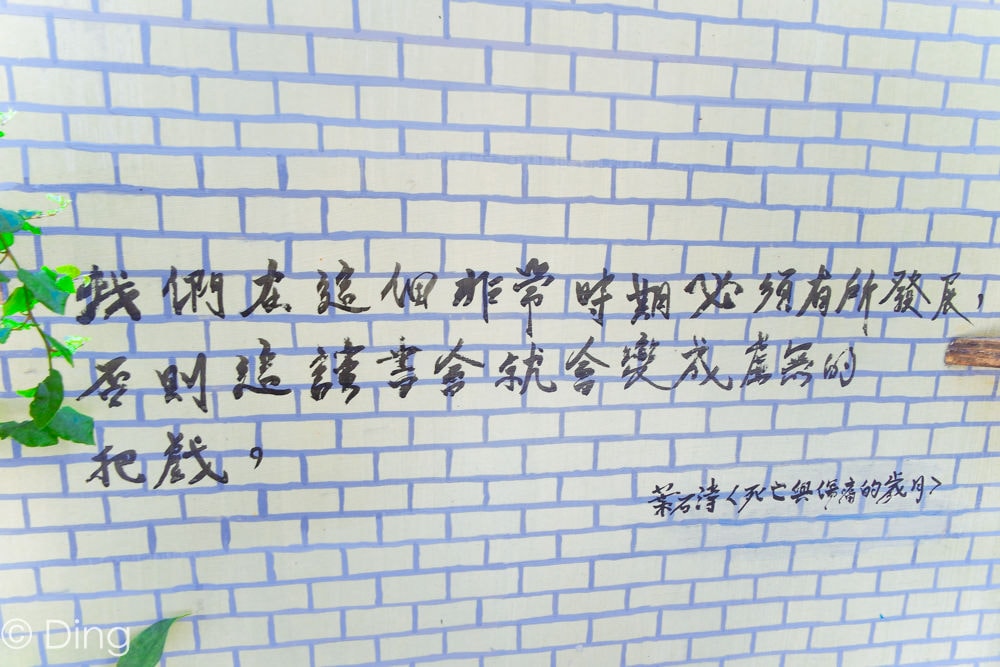 我們在這個非常時期必須有所發展,
否則這讀書會就會變成虛無的
把戲,
葉石濤〈死亡與傷痛的歲月〉
© Ding